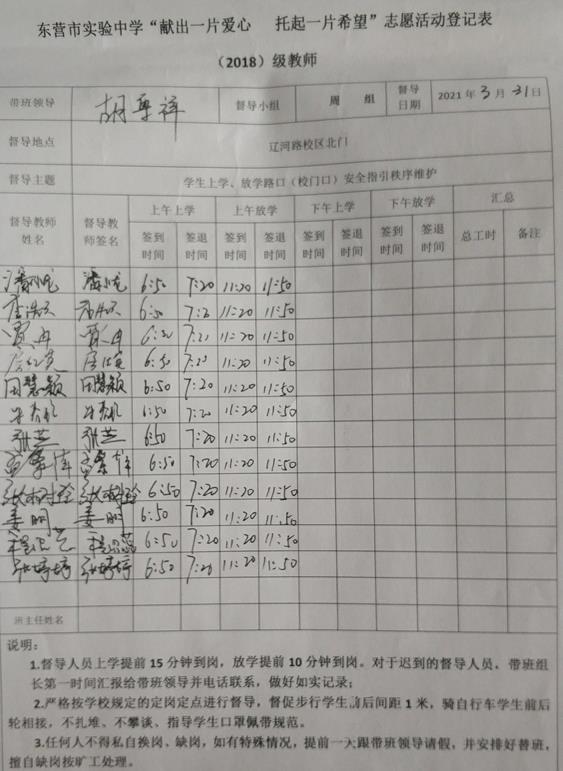 东营市实验中学“献出一片爱心 托起一片希望”志愿活动登记表
（2018）级教师
带班领导 督导小组 周 组 督导日期 2021年3月31日
督导地点 辽河路校区北门
督导主题 学生上学、放学路口（校门口）安全指引秩序维护
督导教师姓名 督导教师签名 上午上学 上午放学 下午上学 下午放学 汇总
签到时间 签退时间 签到时间 签退时间 签到时间 签退时间 签到时间 签退时间 总工时 备注
6:50 7:20 11:20 11:50
11:20 11:50
贾冉 贾冉 11:20 11:50
6:50 11:20 11:50
田慧颖 田慧颖 6:50 7:20 11:20 11:50
6:50 7:20 11:20 11:50
张芝 张芝 6:50 7:20 11:20 11:50
6:50 7:20 11:20 11:50
6:50 7:20 11:20 11:50
姜明 姜明 6:50 7:20 11:20 11:50
6:50 7:20 11:20 11:50
张婷婷 张婷婷 6:50 7:20 11:20 11:50
班主任姓名
说明：
1.督导人员上学提前15分钟到岗，放学提前10分钟到岗。对于迟到的督导人员，带班组
长第一时间汇报给带班领导并电话联系，做好如实记录；
2.严格按学校规定的定岗定点进行督导，督促步行学生前后间距1米，骑自行车学生前后
轮相接，不扎堆、不攀谈、指导学生口罩佩带规范。
3.任何人不得私自换岗、缺岗，如有特殊情况，提前一天跟带班领导请假，并安排好替班，
擅自缺岗按旷工处理。